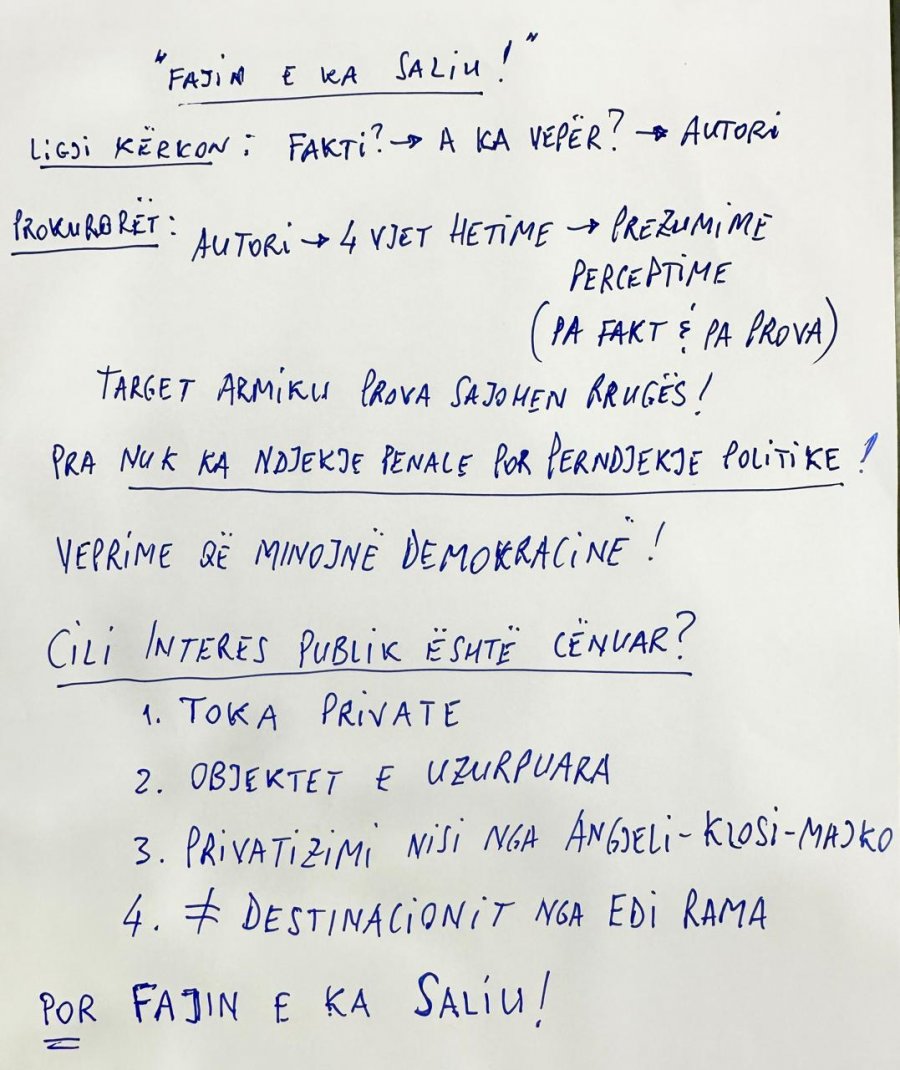 "FAJIN E KA SALIU!"
LIGJI KËRKON: FAKTI? → A KA VEPËR? → AUTORI
PROKURORËT: AUTORI → 4 VJET HETIME → PREZUMIME
PERCEPTIME
(PA FAKT & PA PROVA)
TARGET ARMIKU PROVA SAJOHEN RRUGËS!
PRA NUK KA NDJEKJE PENALE POR PERNDJEKJE POLITIKE!
VEPRIME QË MINOJNË DEMOKRACINË!
CILI INTERES PUBLIK ËSHTË CËNUAR?
1. TOKA PRIVATE
2. OBJEKTET E UZURPUARA
3. PRIVATIZIMI NISI NGA ANGJELI-KLOSI-MAJKO
4. ≠ DESTINACIONIT NGA EDI RAMA
POR FAJIN E KA SALIU!